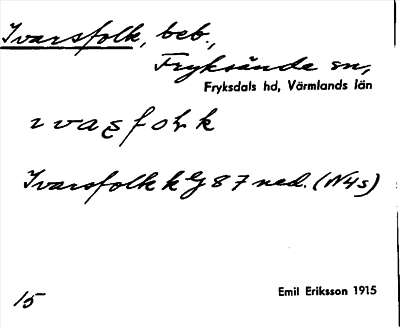 Ivarsfolk, beb.,
Fryksände sn,
Fryksdals hd, Värmlands län
Ivarsfolk k bl 87 ned. (N4s)
15
Emil Eriksson 1915